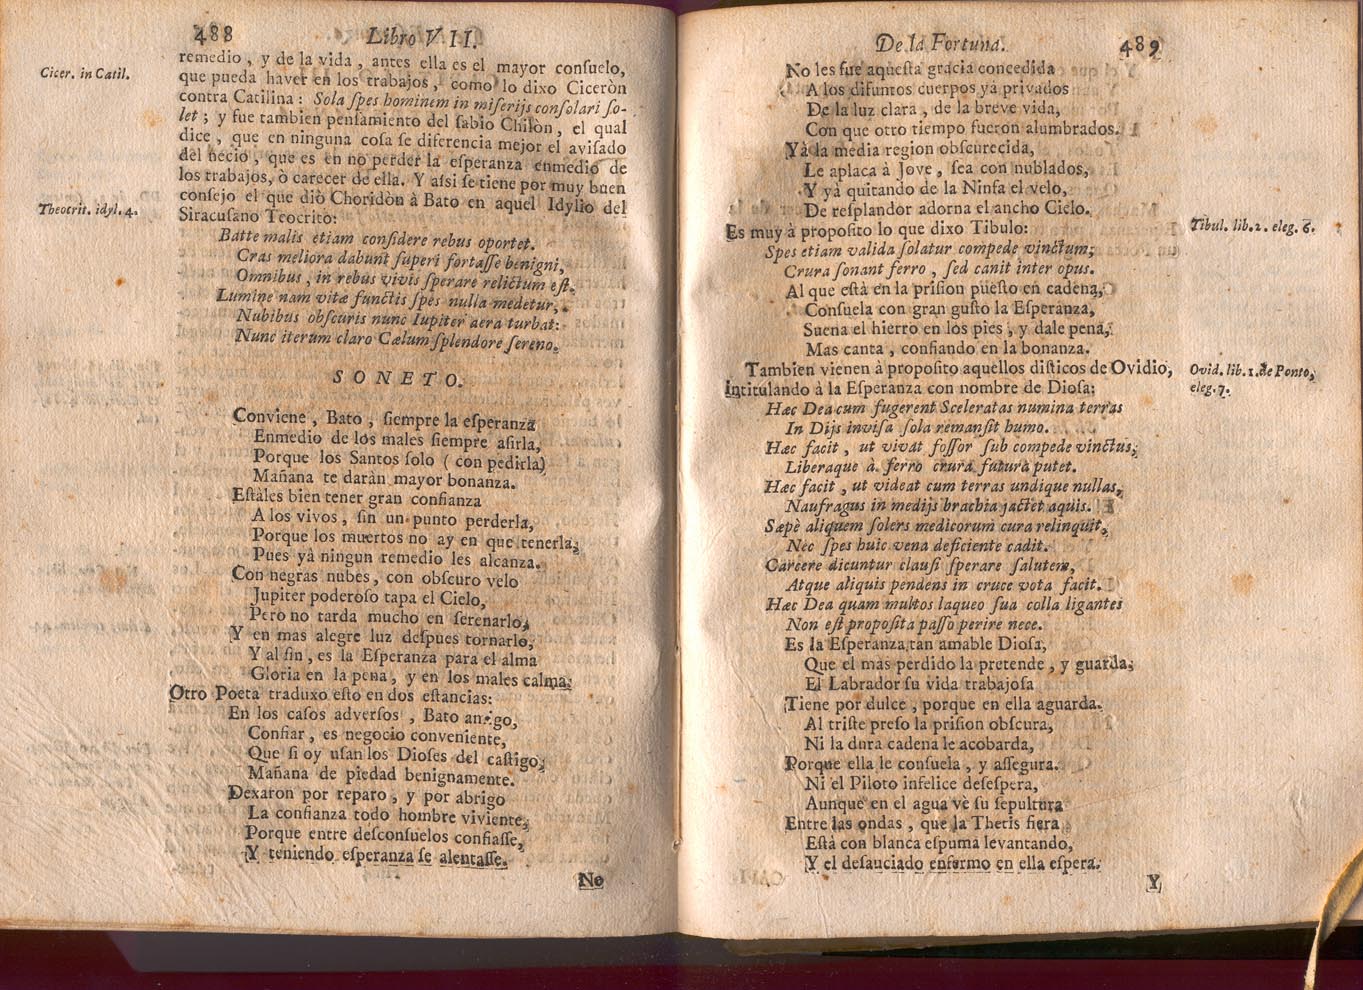 488 Libro VII.
remedio, y de la vida, antes ella es el mayor conſuelo,
Cicer. in Catil.
que pueda haver en los trabajos, como lo dixo Ciceròn
contra Catilina: Sola ſpes hominem in miſerijs conſolari ſo-
let; y fue tambien penſamiento del ſabio Chilòn, el qual
dice, que en ninguna coſa ſe diferencia mejor el aviſado
del necio, que es en no perder la eſperanza enmedio de
los trabajos, ò carecer de ella. Y aſsi ſe tiene por muy buen
conſejo el que diò Choridòn à Bato en aquel Idylio del
Theotrit. idyl. 4.
Siracuſano Teocrito:
Batte malis etiam confidere rebus oportet.
Cras meliora dabunt ſuperi fortaſſe benigni,
Omnibus, in rebus vivis ſperare relictum eſt.
Lumine nam vitæ functis ſpes nulla medetur,
Nubibus obſcuris nunc Iupiter aera turbat:
Nunc iterum claro Cælum ſplendore ſereno.
SONETO.
Conviene, Bato, ſiempre la eſperanza
Enmedio de los males ſiempre aſirla,
Porque los Santos ſolo (con pedirla)
Mañana te daràn mayor bonanza.
Eſtàles bien tener gran confianza
A los vivos, ſin un punto perderla,
Porque los muertos no ay en que tenerla;
Pues yà ningun remedio les alcanza.
Con negras nubes, con obſcuro velo
Jupiter poderoſo tapa el Cielo,
Pero no tarda mucho en ſerenarlo,
Y en mas alegre luz deſpues tornarlo,
Y al fin, es la Eſperanza para el alma
Gloria en la pena, y en los males calma;
Otro Poeta traduxo eſto en dos eſtancias:
En los caſos adverſos, Bato amigo,
Confiar, es negocio conveniente,
Que ſi oy uſan los Dioſes del caſtigo,
Mañana de piedad benignamente.
Dexaron por reparo, y por abrigo
La confianza todo hombre viviente,
Porque entre deſconſuelos confiaſſe,
Y teniendo eſperanza ſe alentaſſe.
No
De la Fortuna. 489
No les fuè aqueſta gracia concedida
A los difuntos cuerpos yà privados
De la luz clara, de la breve vida,
Con que otro tiempo fueron alumbrados.
Yà la media region obſcurecida,
Le aplaca à Jove, ſea con nublados,
Y yà quitando de la Ninfa el velo,
De reſplandor adorna el ancho Cielo.
Es muy à propoſito lo que dixo Tibulo:
Tibul. lib. 2. eleg. 6.
Spes etiam valida ſolatur compede vinctum;
Crura ſonant ferro, ſed canit inter opus.
Al que eſtà en la priſion pueſto en cadena,
Conſuela con gran guſto la Eſperanza,
Suena el hierro en los pies, y dale pena,
Mas canta, confiando en la bonanza.
Tambien vienen à propoſito aquellos diſticos de Ovidio,
Ovid. lib. 1. de Ponto,
eleg. 7.
intitulando à la Eſperanza con nombre de Dioſa:
Hæc Dea cum fugerent Sceleratas numina terras
In Dijs inviſa ſola remanſit humo.
Hæc facit, ut vivat foſſor ſub compede vinctus,
Liberaque à ferro crura futura putet.
Hæc facit, ut videat cum terras undique nullas,
Naufragus in medijs brachia jactet aquis.
Sæpè aliquem ſolers medicorum cura relinquit,
Nec ſpes huic vena deficiente cadit.
Carcere dicuntur clauſi ſperare ſalutem,
Atque aliquis pendens in cruce vota facit.
Hæc Dea quam multos laqueo ſua colla ligantes
Non eſt propoſita paſſo perire nece.
Es la Eſperanza, tan amable Dioſa,
Que el mas perdido la pretende, y guarda;
El Labrador ſu vida trabajoſa
Tiene por dulce, porque en ella aguarda.
Al triſte preſo la priſion obſcura,
Ni la dura cadena le acobarda,
Porque ella le conſuela, y aſſegura.
Ni el Piloto infelice deſeſpera,
Aunque en el agua vè ſu ſepultura
Entre las ondas, que la Thetis fiera
Eſtà con blanca eſpuma levantando,
Y el deſauciado enfermo en ella eſpera.
Y